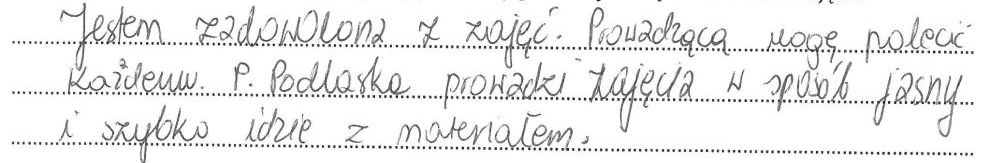 Jestem zadowolona z zajęć. Prowadzącą mogę polecić
każdemu. P. Podlaska prowadzi zajęcia w sposób jasny
i szybko idzie z materiałem.